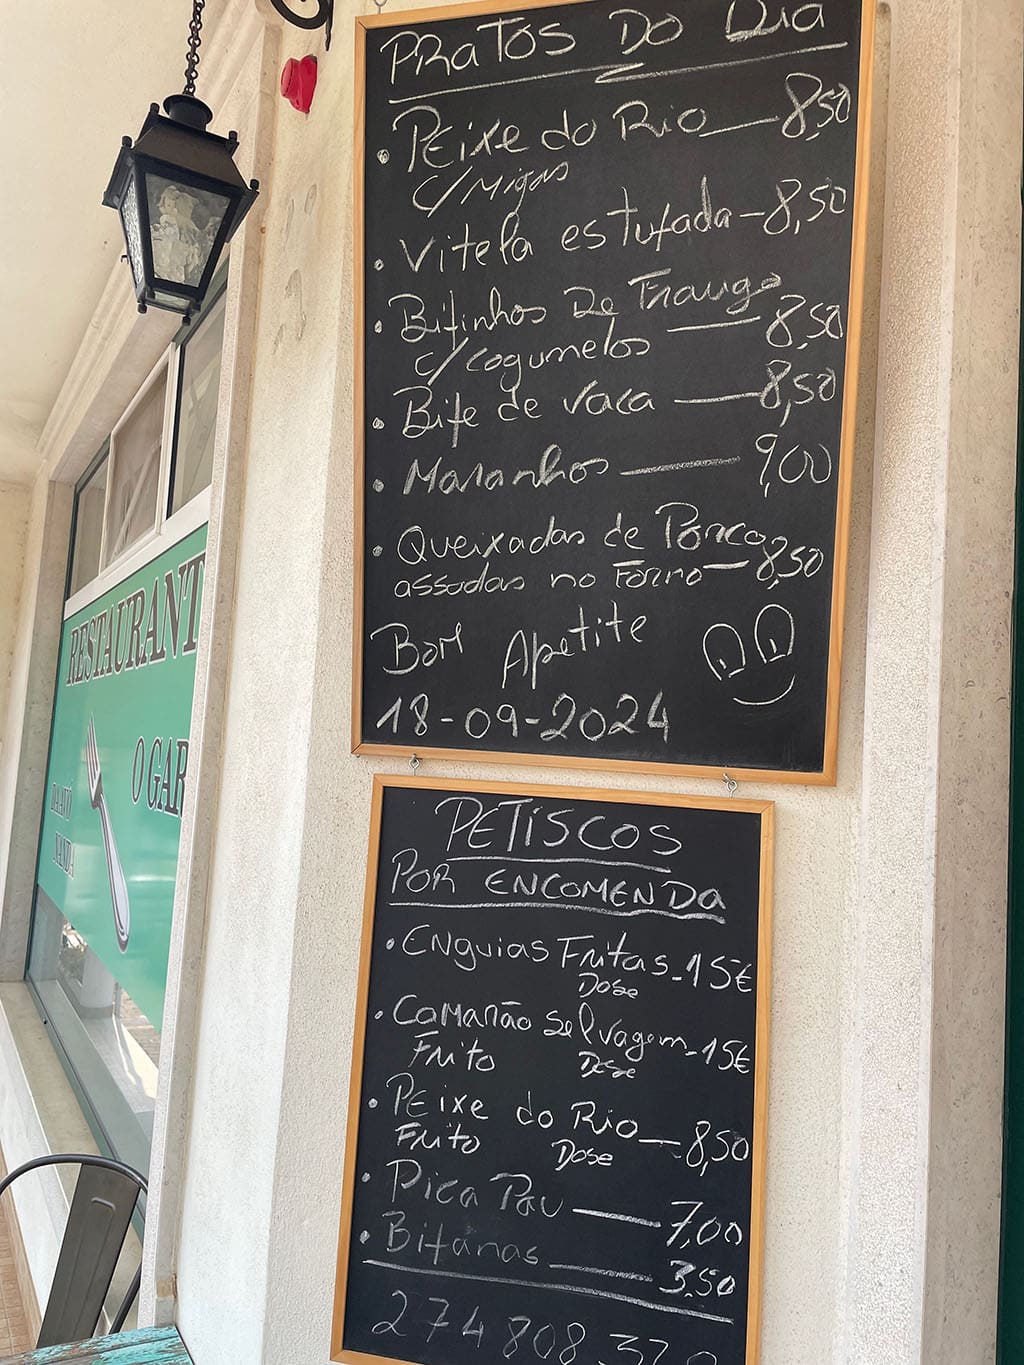 PRATOS DO DIA
• PEixe do Rio — 8,50
c/Migas
• Vitela estufada - 8,50
• Bifinhos De Frango
c/cogumelos — 8,50
• Bife de vaca — 8,50
• Maranhos — 9,00
• Queixadas de Porco
assadas no Forno — 8,50
Bom Apetite
18-09-2024
PETISCOS
POR ENCOMENDA
• ENguias Fritas - 15€
Dose
• Camarão Selvagem - 15€
Frito Dose
• PEixe do Rio — 8,50
Frito Dose
• Pica Pau — 7,00
• Bifanas — 3,50
274 808
RESTAURANT
O GAR
DA AVÓ